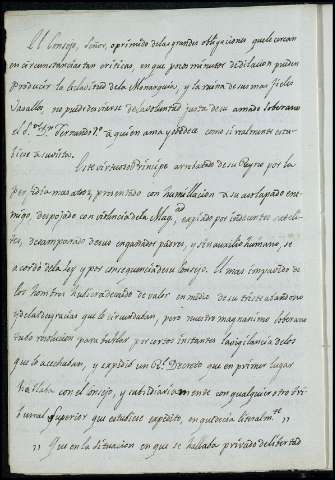 El Consejo, Señor, oprimido delas grandes obligaciones que le cercan
en circunstancias tan criticas, en que pocos minutos de dilacion pueden
producir la esclavitud dela Monarquia, y la ruina de sus mas fieles
Vasallos, no puede desviarse dela voluntad justa de su amado Soberano
el S.or D.n Fernando 7.o a quien ama y obedece como si realmente estu-
biese a su vista.
Este virtuoso Principe arrebatado de su Reyno por la
perfidia mas atroz, presentado con humillacion a su solapado ene-
migo, despojado con violencia dela Mag.ad, espiado por indecentes sateli-
tes, desamparado de sus engañados padres, y sin auxilio humano, se
acordó dela ley y por consequencia de su Consejo. El mas impavido de
los hombres hubiera decaido de valor en medio de su triste
y delas desgracias que lo circundaban, pero nuestro magnanimo Soberano
tubo resolucion para burlar por cortos instantes la vigilancia delos
que lo acechaban, y expidió un R.l Decreto que en primer lugar
hablaba con el consejo, y subsidiariamente con qualquier otro Tri-
bunal Superior que estubiese expedito, en que decia literalm.te „
„ Que en la situacion en que se hallaba privado de libertad